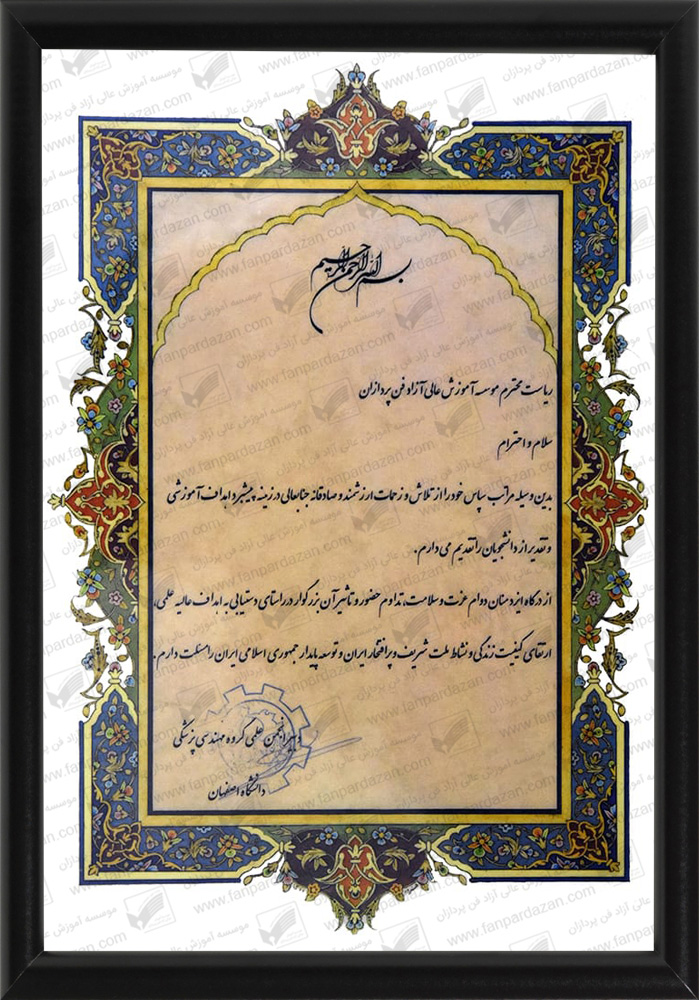 بسم الله الرحمن الرحیم
ریاست محترم موسسه آموزش عالی آزاد فن پردازان
سلام و احترام
بدین وسیله مراتب سپاس خود را از تلاش و زحمات ارزشمند و صادقانه جنابعالی در زمینه پیشبرد اهداف آموزشی
و تقدیر از دانشجویان را تقدیم می دارم.
از درگاه ایزد منان دوام عزت و سلامت، تداوم حضور و تاثیر آن بزرگوار در راستای دستیابی به اهداف عالیه علمی،
ارتقای کیفیت زندگی و نشاط ملت شریف و پرافتخار ایران و توسعه پایدار جمهوری اسلامی ایران را مسئلت دارم.
دبیر انجمن علمی گروه مهندسی پزشکی
دانشگاه اصفهان
موسسه آموزش عالی آزاد فن پردازان
www.fanpardazan.com